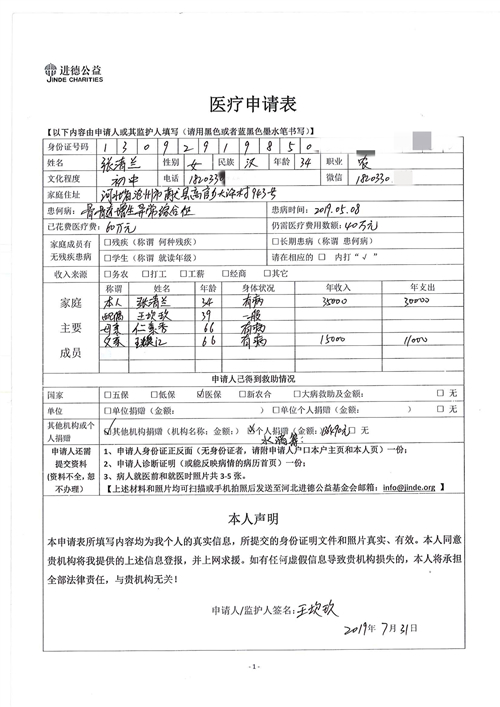 进德公益
JINDE CHARITIES
医疗申请表
【以下内容由申请人或其监护人填写（请用黑色或者蓝黑色墨水笔书写）】
身份证号码 1 3 0 9 2 9 1 9 8 5 0
姓名 张清兰 性别 女 民族 汉 年龄 34 职业 农
文化程度 初中 电话 182033 微信 1820330
家庭住址 河北省沧州市献县高官乡 村943号
患何病： 骨髓增生异常综合征 患病时间：2019.05.08
已花费医疗费：60万元 仍需医疗费用数额：40万元
家庭成员有无残疾患病 □残疾（称谓 何种残疾） □长期患病（称谓 患何病）
□学生（称谓 就读年级） 请在相应的 □ 内打“√”
收入来源 □务农 □打工 □工薪 □经商 □其它
家庭主要成员 称谓 姓名 年龄 身体状况 年收入 年支出
本人 张清兰 34 有病 35000 30000
配偶 王坎玖 39 一般
母亲 秀 66 有病
父亲 王 66 有病 15000 11000
申请人已得到救助情况
国家 □五保 □低保 ☑医保 □新农合 □大病救助及金额： □ 无
单位 □单位捐赠（金额： ） □单位个人捐赠（金额： ） □ 无
其他机构或个人捐赠 ☑其他机构捐赠（机构名称；金额：） ☑个人捐赠（金额： 元 □ 无
水滴筹
申请人还需提交资料（资料不全，恕不办理）
1、申请人身份证正反面（无身份证者，请附申请人户口本户主页和本人页）一份；
2、申请人诊断证明（或能反映病情的病历首页）一份；
3、病人就医前和就医时照片共 3-5 张。
【上述材料和照片均可扫描或手机拍照后发送至河北进德公益基金会邮箱：info@jinde.org】
本人声明
本申请表所填写内容均为我个人的真实信息，所提交的身份证明文件和照片真实、有效。本人同意
贵机构将我提供的上述信息登报，并上网求援。如有任何虚假信息导致贵机构损失的，本人将承担
全部法律责任，与贵机构无关！
申请人/监护人签名：王坎玖
2019年 7月 31日
- 1 -